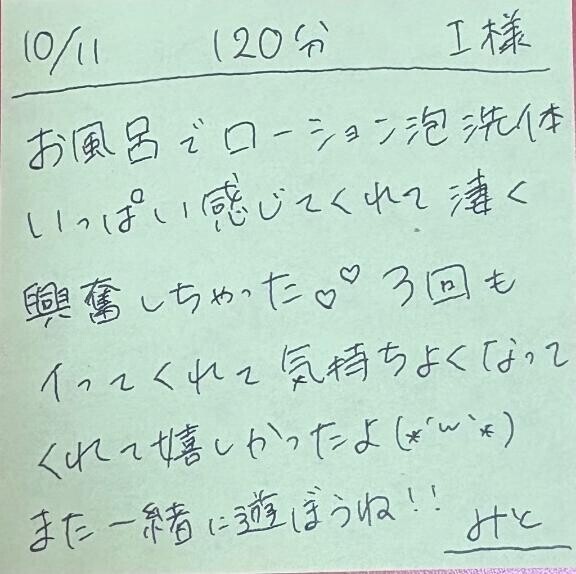 10/11 120分 I様
お風呂でローション泡洗体
いっぱい感じてくれて凄く
興奮しちゃった♡♡ 3回も
イってくれて気持ちよくなって
くれて嬉しかったよ(*´ω`*)
また一緒に遊ぼうね!! みと